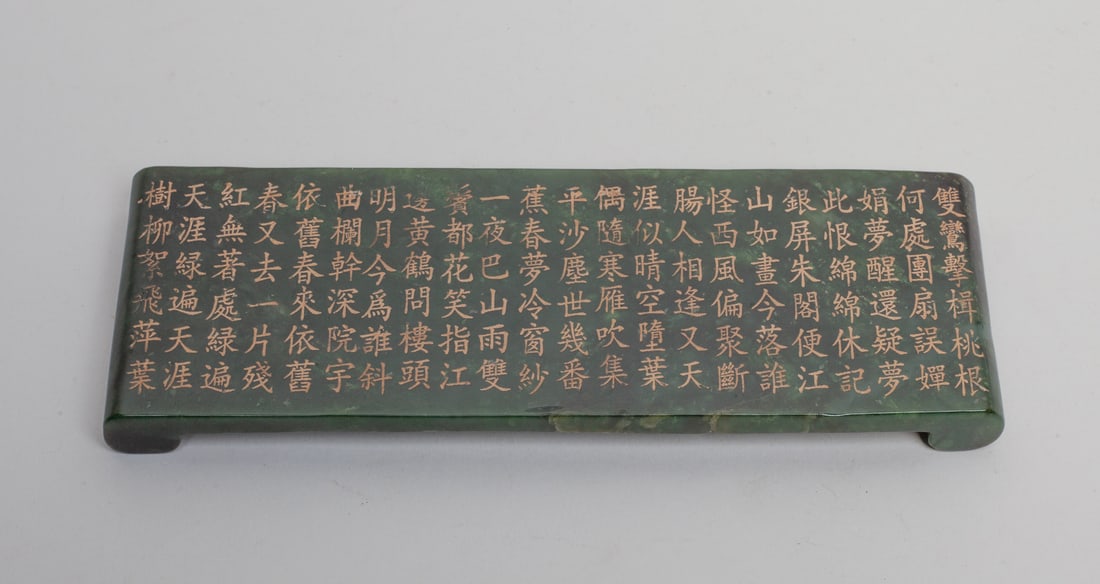 雙鸞擊楫桃根
何處團扇誤嬋
娟夢醒還疑夢
此恨綿綿休記
銀屏朱閣便江
山如畫今落誰
怪西風偏聚斷
腸人相逢又天
涯似晴空墮葉
偶隨寒雁吹集
平沙塵世幾番
蕉春夢冷窗紗
一夜巴山雨雙
鬢都花笑指江
黃鶴問樓頭
明月今爲誰斜
曲欄幹深院宇
依舊春來依舊
春又去一片殘
紅無著處綠遍
天涯綠遍天涯
樹柳絮飛萍葉